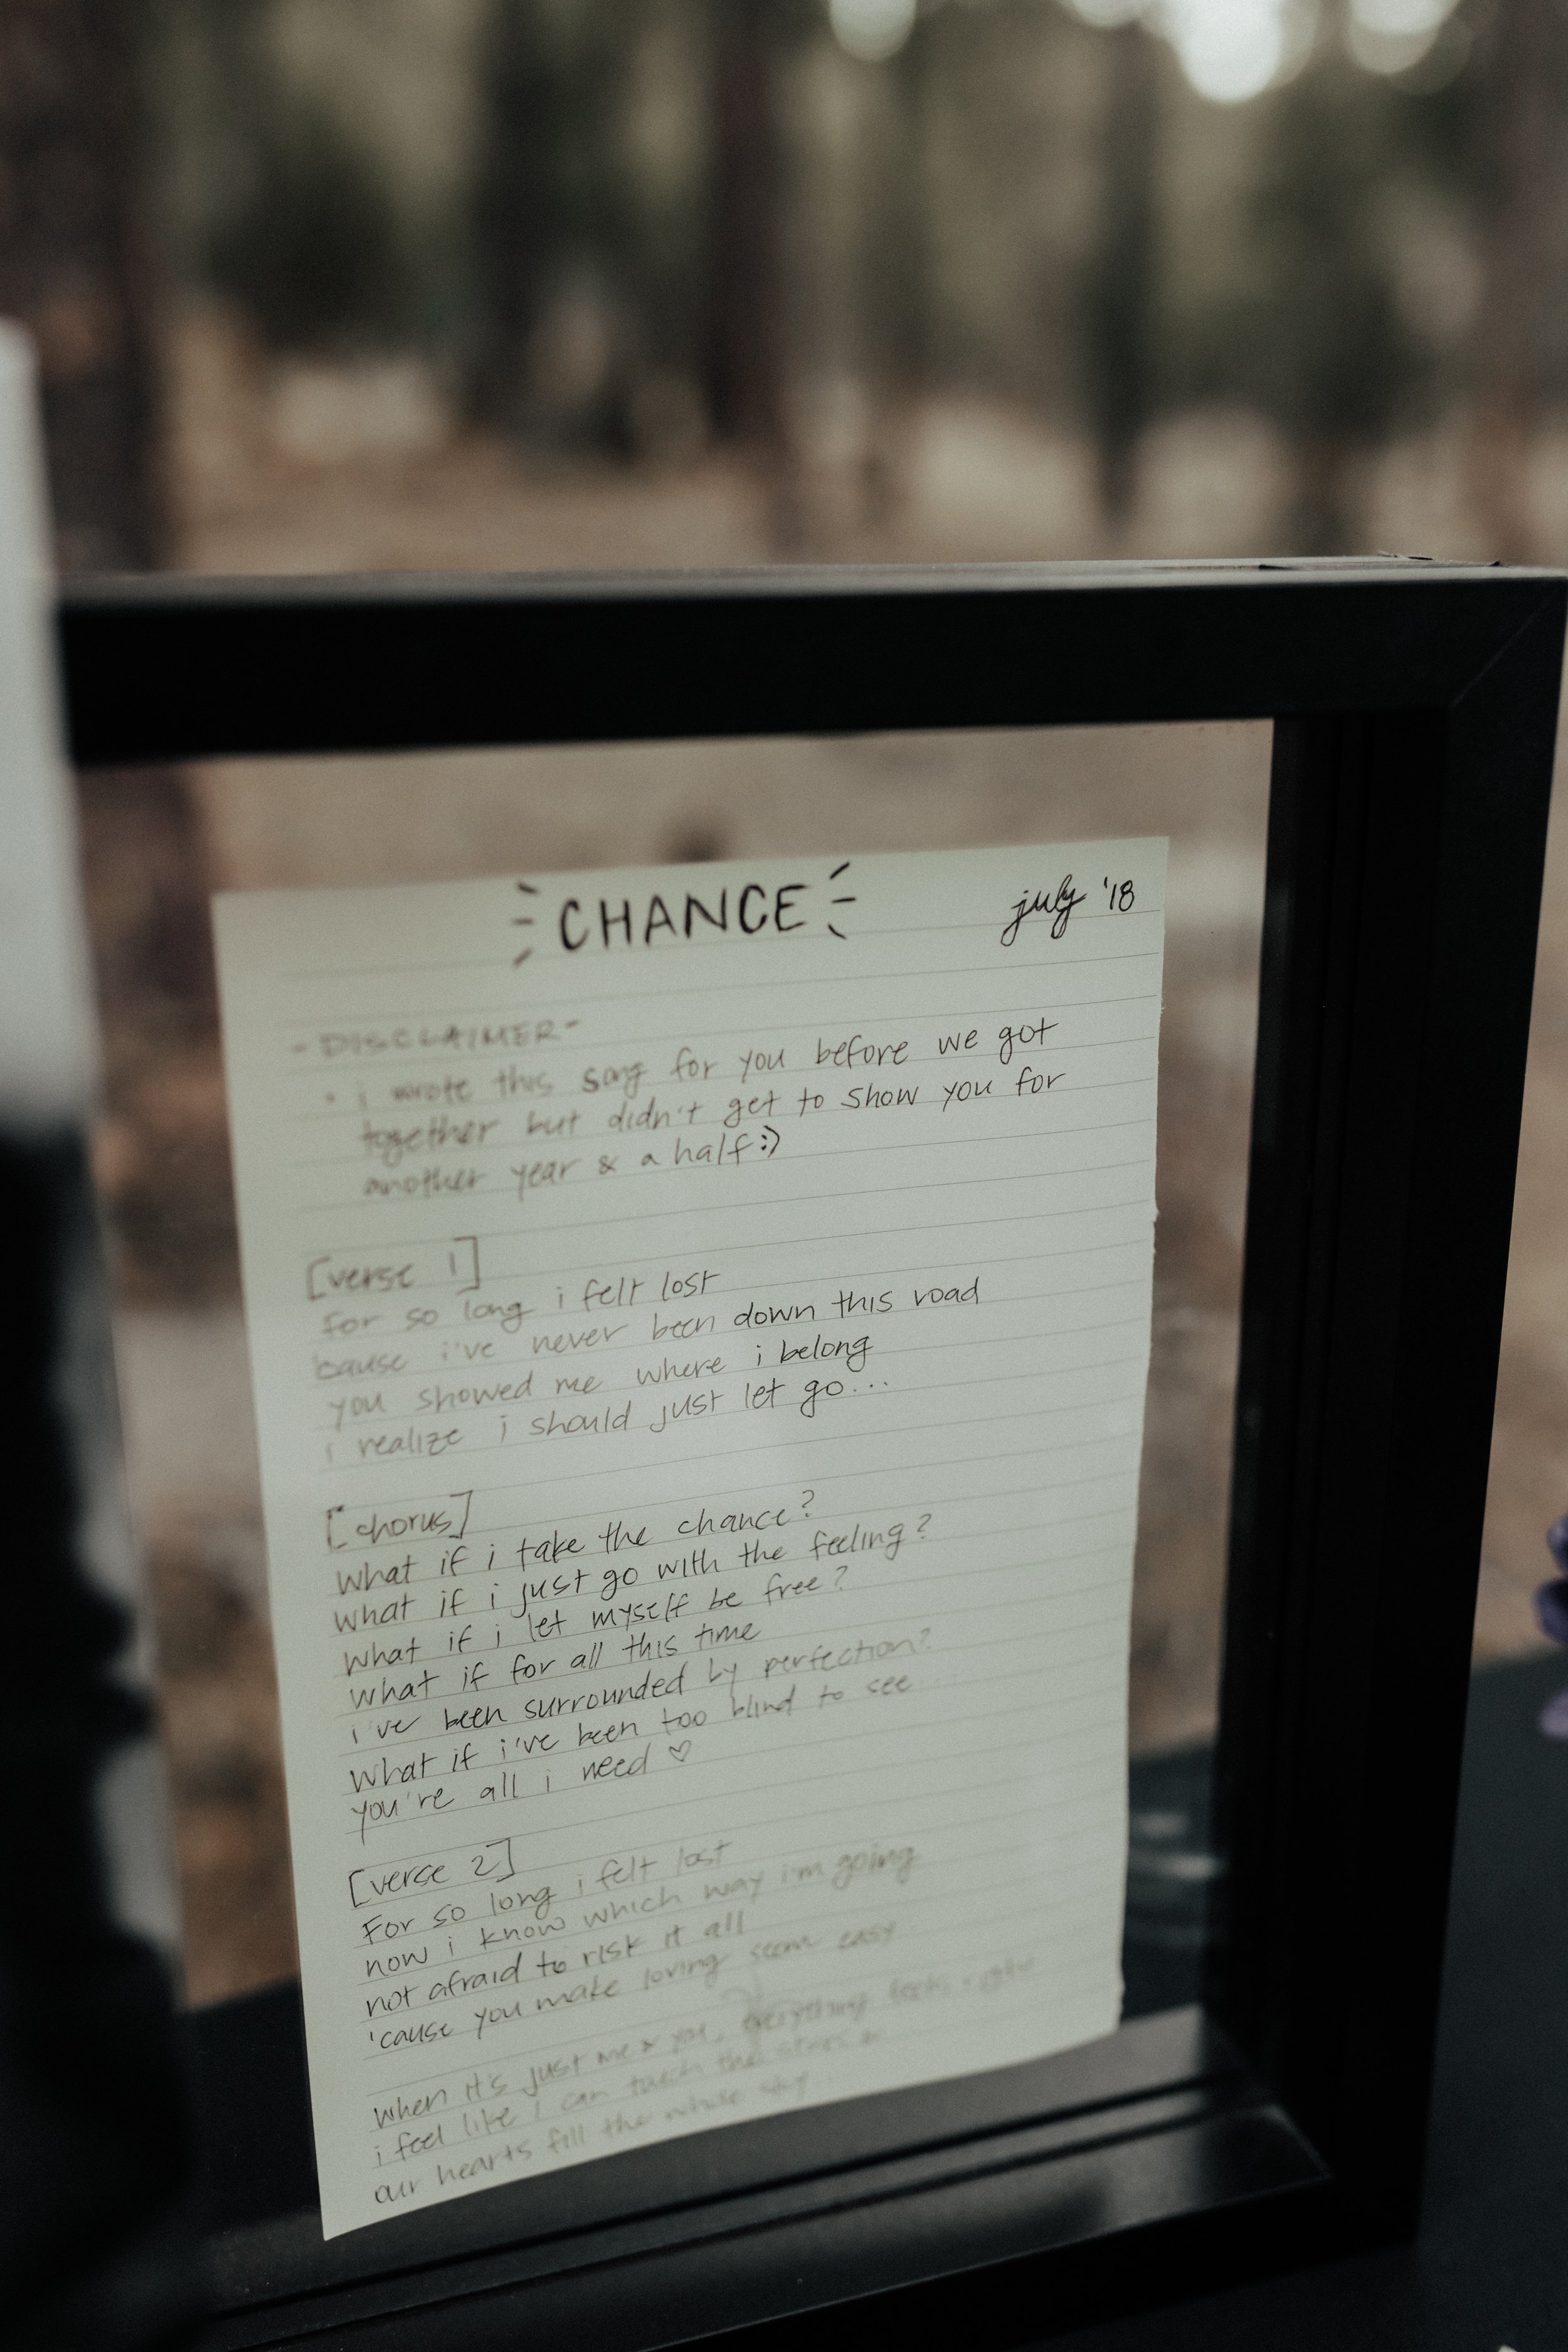 CHANCE july '18
- DISCLAIMER -
• i wrote this song for you before we got
together but didn't get to show you for
another year & a half :)
[verse 1]
For so long i felt lost
'cause i've never been down this road
you showed me where i belong
i realize i should just let go...
[chorus]
what if i take the chance?
what if i just go with the feeling?
what if i let myself be free?
what if for all this time
i've been surrounded by perfection?
what if i've been too blind to see...
you're all i need ♡
[verse 2]
For so long i felt lost
now i know which way i'm going
not afraid to risk it all
'cause you make loving seem easy
when it's just me & you, everything feels
i feel like i can touch the stars &
our hearts fill the whole sky